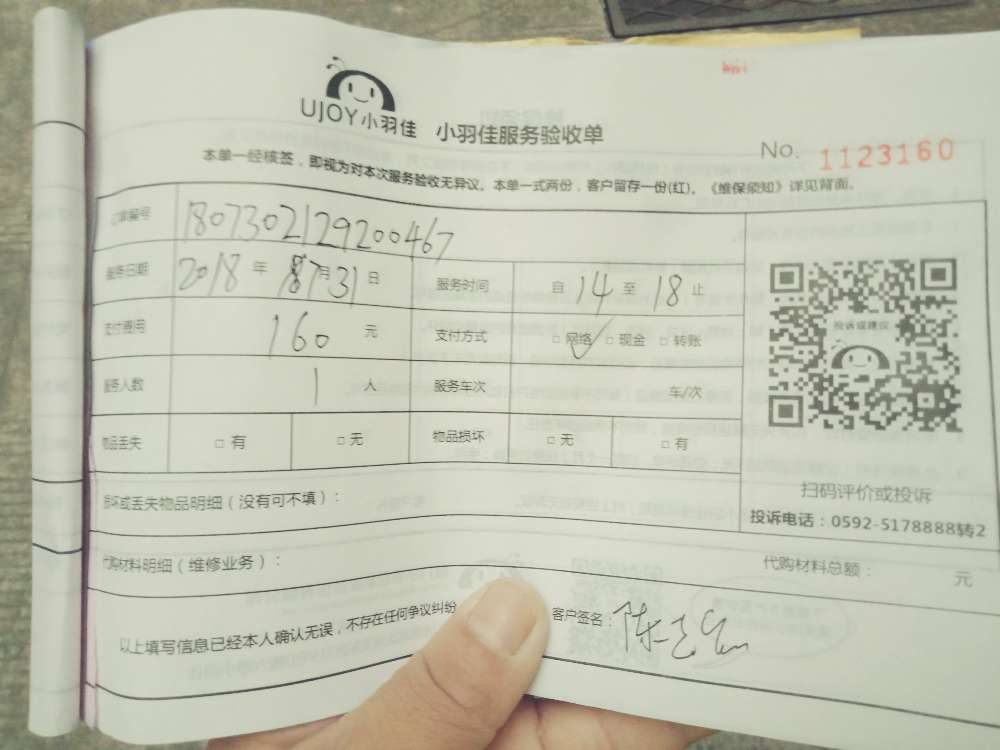 UJOY小羽佳 小羽佳服务验收单
No. 1123160
本单一经核签，即视为对本次服务验收无异议。本单一式两份，客户留存一份(红)。《维保须知》详见背面。
订单编号 180730212920046７
服务日期 2018 年 7月 31 日 服务时间 自 14 至 18 止
支付费用 160 元 支付方式 □ 网络 □ 现金 □ 转账
服务人数 1 人 服务车次 车/次
物品丢失 □ 有 □ 无 物品损坏 □ 无 □ 有
投诉或建议
扫码评价或投诉
投诉电话：0592-5178888转2
损坏或丢失物品明细（没有可不填）：
代购材料明细（维修业务）： 代购材料总额： 元
以上填写信息已经本人确认无误，不存在任何争议纠纷 客户签名： 陈